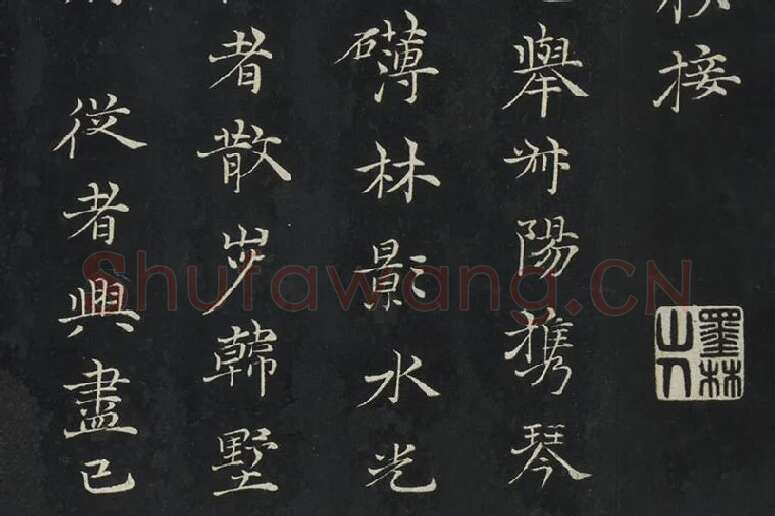 接
舉陽携琴
礴林影水光
者散步韓墅
從者興盡已
墨林山人
Shufawang.CN